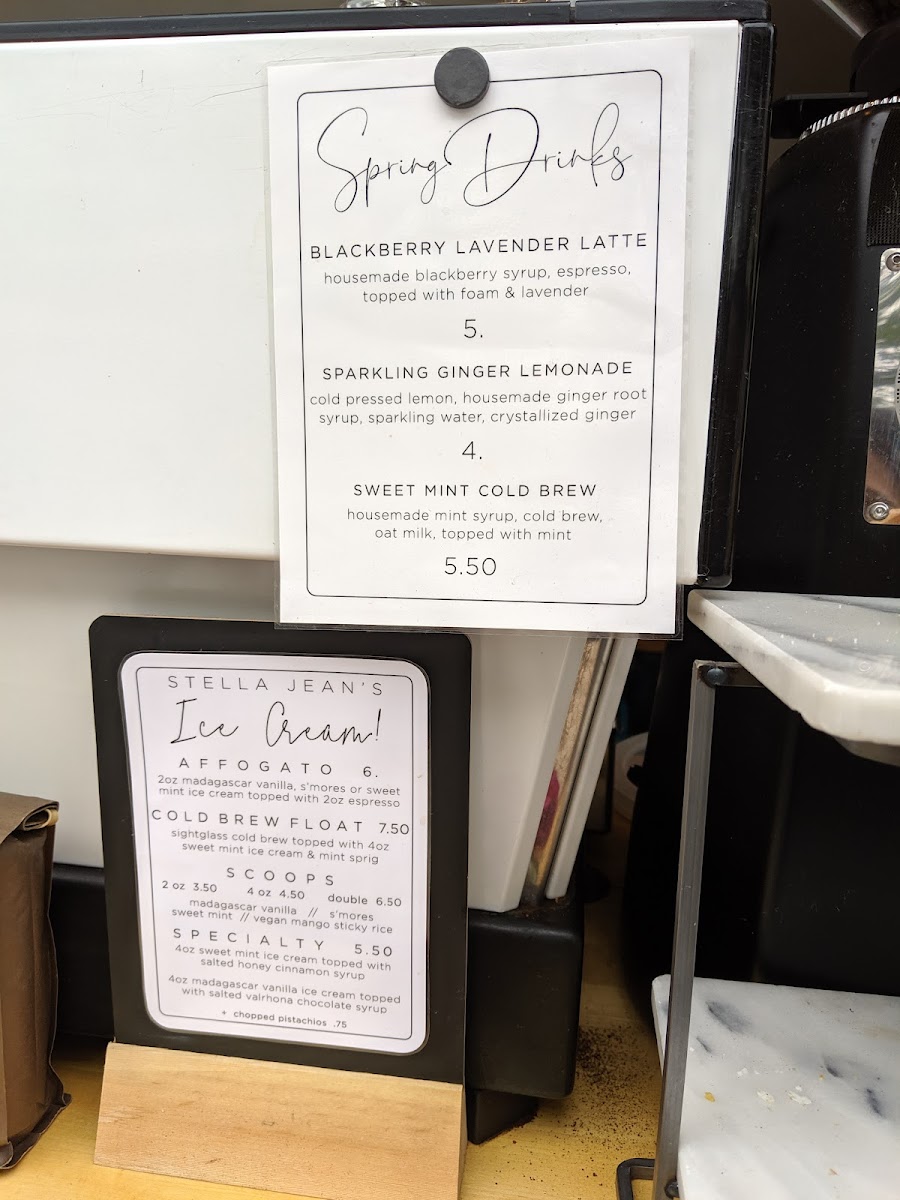 Spring Drinks
BLACKBERRY LAVENDER LATTE
housemade blackberry syrup, espresso,
topped with foam & lavender
5.
SPARKLING GINGER LEMONADE
cold pressed lemon, housemade ginger root
syrup, sparkling water, crystallized ginger
4.
SWEET MINT COLD BREW
housemade mint syrup, cold brew,
oat milk, topped with mint
5.50
STELLA JEAN'S
Ice Cream!
AFFOGATO 6.
2oz madagascar vanilla, s'mores or sweet
mint ice cream topped with 2oz espresso
COLD BREW FLOAT 7.50
sightglass cold brew topped with 4oz
sweet mint ice cream & mint sprig
SCOOPS
2 oz 3.50 4 oz 4.50 double 6.50
madagascar vanilla // s'mores
sweet mint // vegan mango sticky rice
SPECIALTY 5.50
4oz sweet mint ice cream topped with
salted honey cinnamon syrup
4oz madagascar vanilla ice cream topped
with salted valrhona chocolate syrup
+ chopped pistachios .75